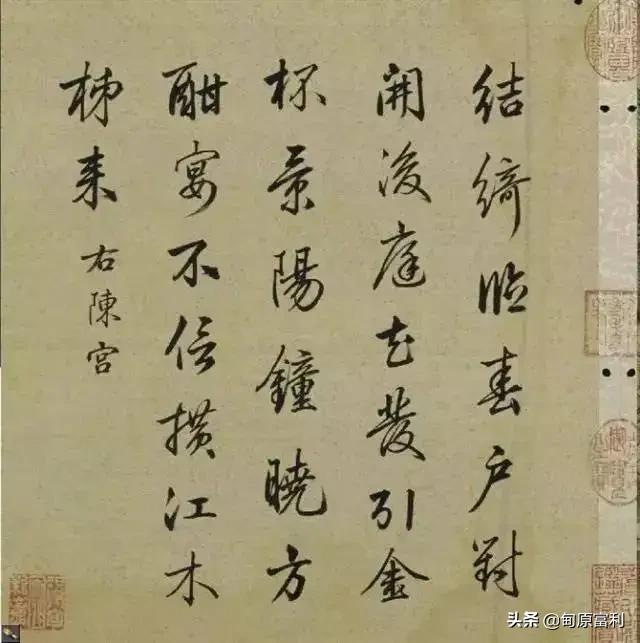 結綺臨春户對
開後庭花發引金
杯景陽鐘曉方
酣宴不信橫江木
柹来 右陳宮
头条 @甸原富利